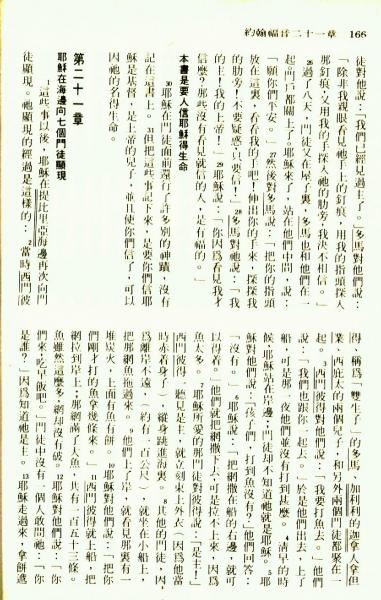 約翰福音二十一章
166
徒對他說：「我們已經見過主了。」多馬對他們說：
「除非我親眼看見祂手上的釘痕，用我的指頭探入
那釘痕，又用我的手探入祂的肋旁，我決不相信。」
26過了八天，門徒又在屋子裏，多馬也和他們在一
起。門戶都關上了，耶穌來了，站在他們中間，說：
「願你們平安。」27然後對多馬說：「把你的指頭
放在這裏，看看我的手吧！伸出你的手來，探探我
的肋旁！不要疑惑，只要信！」28多馬對祂說：「我
的主！我的上帝！」29耶穌說：「你因為看見我才
信麼？那些沒有看見就信的人，是有福的。」
本書是要人信耶穌得生命
30耶穌在門徒面前還行了許多別的神蹟，沒有
記在這書上。31但把這些事記下來，是要你們信耶
穌是基督，是上帝的兒子，並且使你們信了，可以
因祂的名得生命。
第二十一章
耶穌在海邊向七個門徒顯現
1這些事以後，耶穌在提比里亞海邊再次向門
徒顯現。祂顯現的經過是這樣的：2當時西門彼
得、稱為「雙生子」的多馬、加利利的迦拿人拿但
業、西庇太的兩個兒子，和另外兩個門徒都聚在一
起。3西門彼得對他們說：「我要打魚去。」他們
說：「我們也跟你一起去。」於是他們出去，上了
船；可是那一夜他們並沒有打到甚麼。4清早的時
候，耶穌站在岸邊；門徒卻不知道祂就是耶穌。5耶
穌對他們說：「孩子們，打到魚沒有？」他們回答：
「沒有。」6耶穌說：「把網撒在船的右邊，就可
以得着。」他們就把網撒下去，可是拉不上來，因為
魚太多。7耶穌所愛的那門徒對彼得說：「是主！」
西門彼得一聽見是主，就立刻束上外衣（因為他當
時赤着身子），縱身跳進海裏。8其他的門徒，因
為離岸不遠，（約有一百公尺），就坐在小船上，
把那網魚拖過來。9他們上了岸，就看見那裏有一
堆炭火，上面有魚有餅。10耶穌對他們說：「把你
們剛才打的魚拿幾條來。」11西門彼得就上船，把
網拉到岸上；那網滿了大魚，共有一百五十三條。
魚雖然這麼多，網卻沒有破。12耶穌對他們說：「你
們來吃早飯吧。」門徒中沒有一個人敢問祂：「你
是誰？」因為知道祂是主。13耶穌走過來，拿餅遞